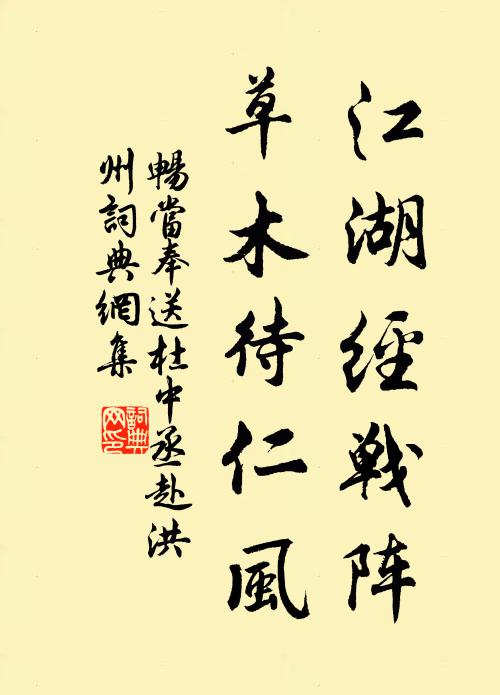 江湖經戦阵
草木待仁風
暢當奉送杜中丞赴洪
州詞典網集
詞典網印